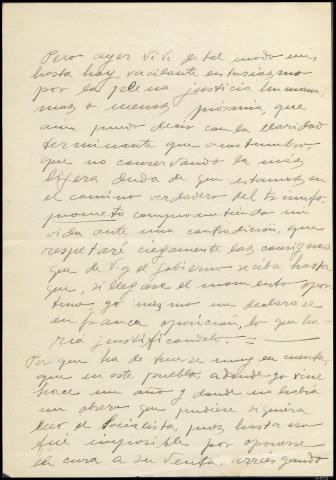 Pero ayer viví de tal modo mi,
hasta hoy, vacilante entusiasmo
por la plena justicia humana,
mas o menos próxima, que
aún puedo decir con la claridad
terminante que acostumbro
que no conservando la más
ligera duda de que estamos en
el camino verdadero del triunfo,
prometo comprometiendo mi
vida ante una contradición, que
respetaré ciegamente las consignas
que de V. y el gobierno reciba hasta
que, si llegase el momento opor-
tuno, yo mismo me declarase
en franca oposición, lo que ha-
ría justificandolo. —
Por que ha de tenerse muy en cuenta,
que en este pueblo, a donde yo vine
hace un año y donde no había
un obrero que pudiese siquiera
leer el Socialista, pues hasta eso
fué imposible por oponerse
el cura a su venta, arriesgando